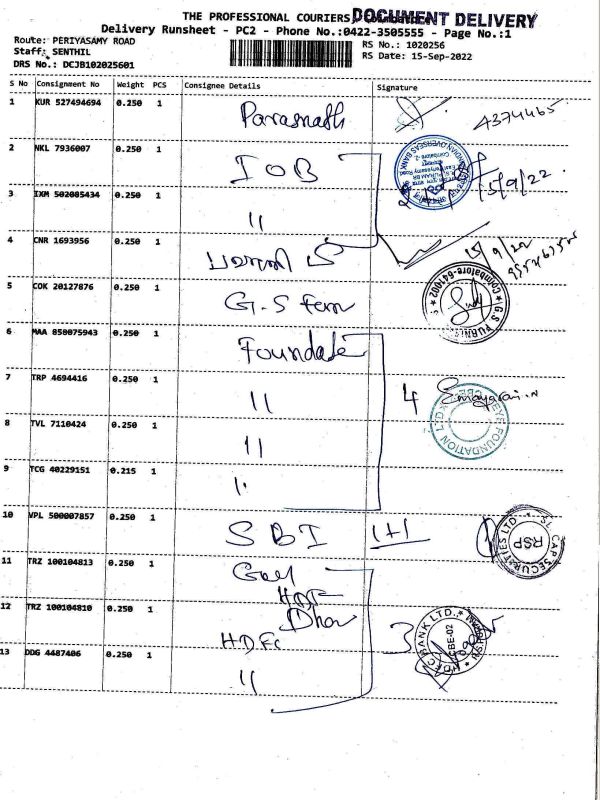 THE PROFESSIONAL COURIERS, Coimbatore
DOCUMENT DELIVERY
Delivery Runsheet - PC2 - Phone No.:0422-3505555 - Page No.:1
Route: PERIYASAMY ROAD
RS No.: 1020256
Staff: SENTHIL
RS Date: 15-Sep-2022
DRS No.: DCJB102025601
S No Consignment No Weight PCS Consignee Details Signature
1 KUR 527494694 0.250 1 Parasnath 4374465
2 NKL 7936007 0.250 1 IOB 15/9/22
INDIAN OVERSEAS BANK
3 IXM 502085434 0.250 1 11
4 CNR 1693956 0.250 1 15/9/22
5 COK 20127876 0.250 1 G.S Fern
Coimbatore-641002
6 MAA 858075943 0.250 1 Foundate
7 TRP 4694416 0.250 1 11 4
EYE FOUNDATION LTD
8 TVL 7110424 0.250 1 11
9 TCG 40229151 0.215 1 1.
10 VPL 500007857 0.250 1 SBI 1+1
CAP SECURITIES LTD
RSP
11 TRZ 100104813 0.250 1
HDF
12 TRZ 100104810 0.250 1 3
HDFC
HDFC BANK LTD.
CBE-02
13 DDG 4487406 0.250 1 11